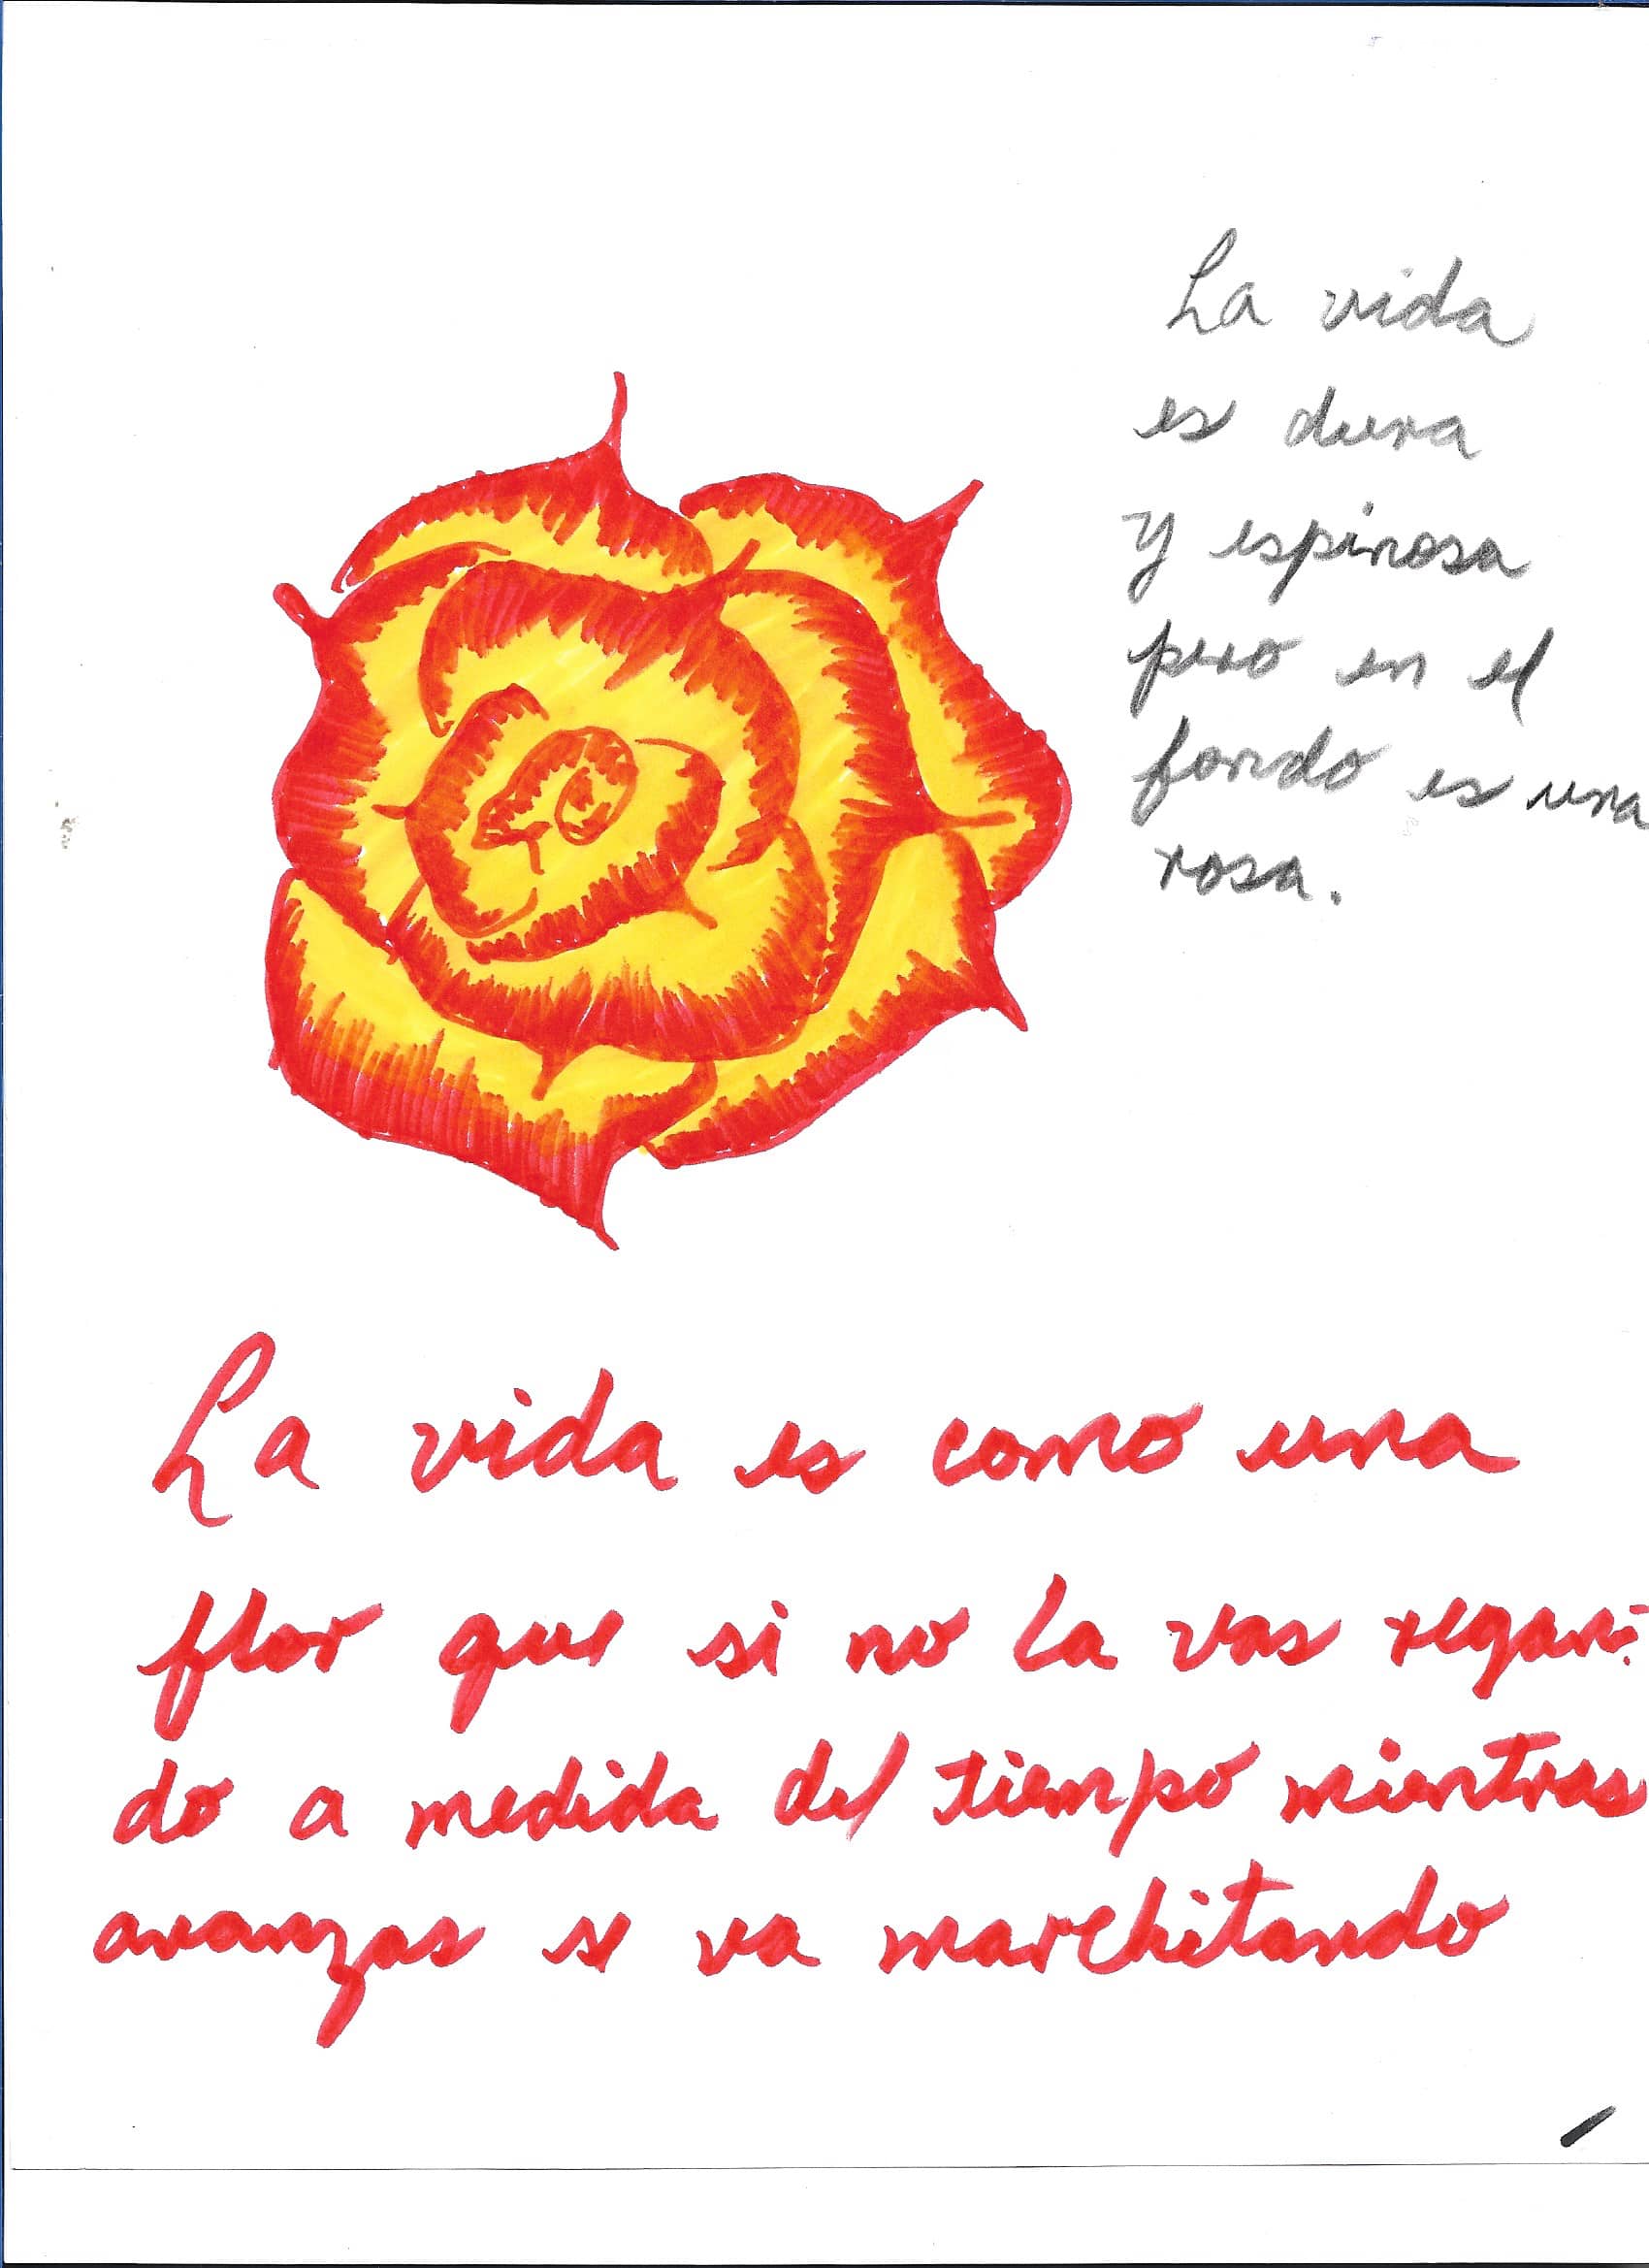 La vida
es dura
y espinosa
pero en el
fondo es una
rosa.
La vida es como una
flor que si no la vas regan-
do a medida del tiempo mientras
avanzas se va marchitando